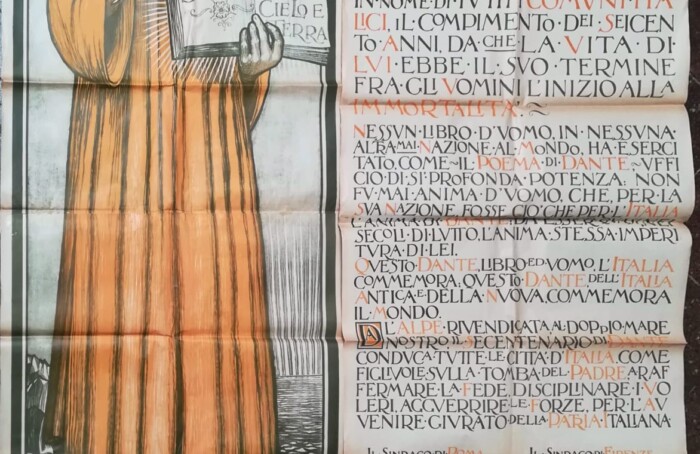 CIELO E
TERRA
IN·NOME·DI·TVTTI·I COMVNI·ITA
LICI, IL·COMPIMENTO·DEI·SEICEN
TO·ANNI, DA·CHE·LA·VITA·DI
LVI·EBBE·IL·SVO·TERMINE
FRA·GLI·VOMINI·L'INIZIO·ALLA
IMMORTALITÀ·
NESSVN·LIBRO·D'VOMO, IN·NESSVNA
ALTRA·MAI·NAZIONE·AL·MONDO, HA·ESERCI
TATO, COME·IL·POEMA·DI·DANTE·VFFI
CIO·DI·SI·PROFONDA·POTENZA: NON
FV·MAI·ANIMA·D'VOMO, CHE, PER·LA
SVA·NAZIONE, FOSSE·CIÒ·CHE·PER·L'ITALIA
L'ANIMA·DI·DANTE
SECOLI·DI·LVTTO, L'ANIMA·STESSA·IMPERI
TVRA·DI·LEI.
QVESTO·DANTE, LIBRO·ED·VOMO, L'ITALIA
COMMEMORA: QVESTO·DANTE, DELL'ITALIA
ANTICA·E·DELLA·NVOVA, COMMEMORA
IL·MONDO.
DALL'ALPE·RIVENDICATA, AL·DOPPIO·MARE
NOSTRO·IL·SECENTENARIO·DI·DANTE
CONDVCA·TVTTE·LE·CITTÀ·D'ITALIA, COME
FIGLIVOLE·SVLLA·TOMBA·DEL·PADRE·A·RAF
FERMARE·LA·FEDE·DISCIPLINARE·I·VO
LERI, AGGVERRIRE·LE·FORZE, PER·L'AV
VENIRE·GIVRATO·DELLA·PATRIA·ITALIANA·
IL·SINDACO·DI·ROMA IL·SINDACO·DI·FIRENZE